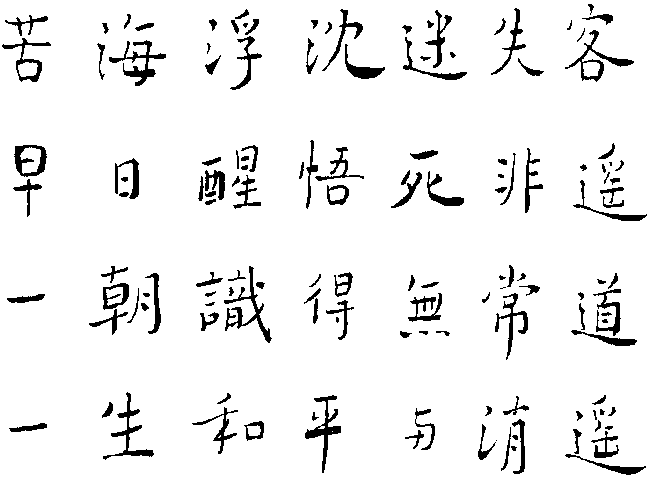 苦海浮沈迷失客
早日醒悟死非遥
一朝識得無常道
一生和平与消遥